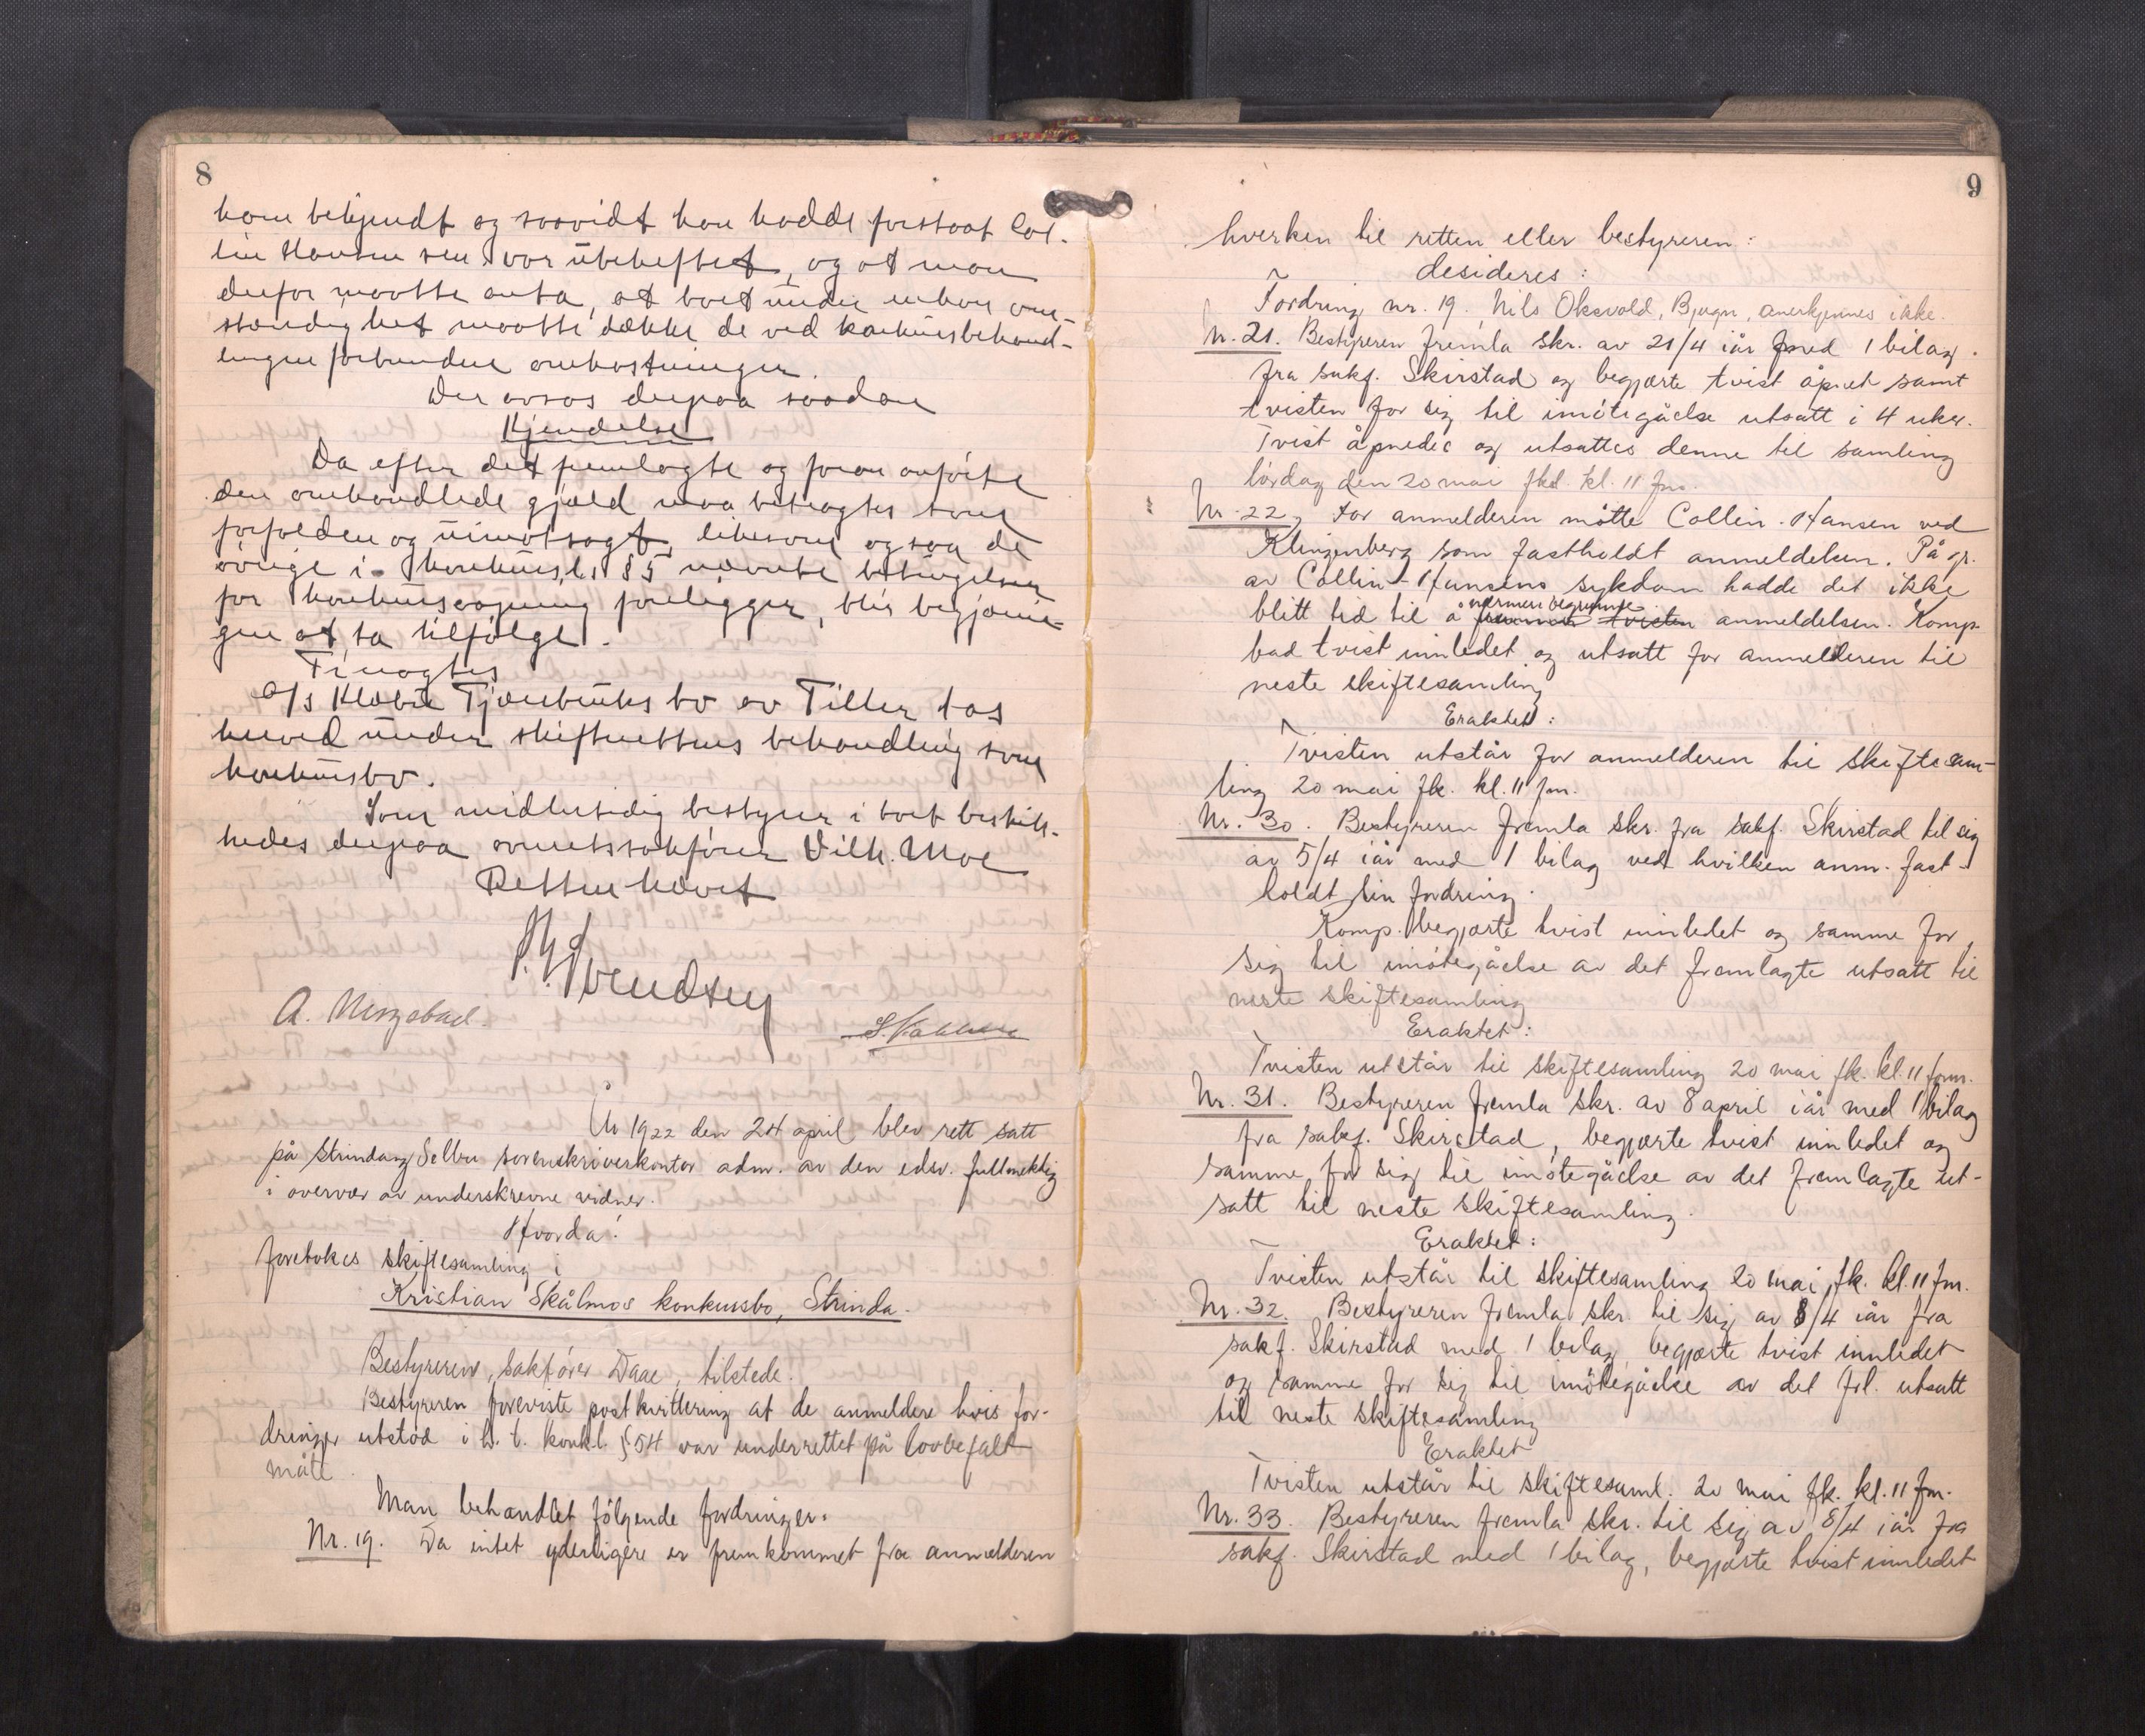 8
ham bekjendt og saavidt han hadde forstaat Col-
lin Hansen sen. var ubeheftet, og at man
derfor maatte anta, at boet under enhver om-
stændighet maatte dække de ved konkursbehand-
lingen forbundne omkostninger.
Der avsas derpaa saadan
Kjendelse
Da efter det fremlagte og foran anførte
den omhandlede gjæld maa betragtes som
forfalden og uimotsagt, likesom ogsaa de
øvrige i konkursl.s § 5 nævnte betingelser
for konkursaapning foreligger, blir begjærin-
gen at ta tilfølge.
Ti eragtes
A/s Klæbu Tjærebruks bo av Tiller tas
herved under skifterettens behandling som
konkursbo.
Som midlertidig bestyrer i boet beskik-
kedes derpaa overretssakfører Vilh. Moe
Retten hævet
Svendsen
A.
År 1922 den 24 april blev rett satt
på Strinda og Selbu sorenskriverkontor adm. av den edsv. fullmektig
i overvær av underskrevne vidner.
Hvorda!
foretokes skiftesamling i
Kristian Skålmos konkursbo, Strinda.
Bestyreren, sakfører Daae, tilstede.
Bestyreren foreviste postkvittering at de anmeldere hvis for-
dringer utstod i h. t. konk.l. § 54 var underrettet på lovbefalt
måte.
Man behandlet følgende fordringer:
Nr. 19. Da intet yderligere er fremkommet fra anmelderen
9
hverken til retten eller bestyreren:
desideres:
Fordring nr. 19, Nils Oksvold, Bjugn, anerkjennes ikke.
Nr. 21. Bestyreren fremla skr. av 21/4 iår med 1 bilag
fra sakf. Skirstad og begjærte tvist åpnet samt
tvisten for sig til imøtegåelse utsatt i 4 uker.
Tvist åpnedes og utsattes denne til samling
lørdag den 20 mai fkd. kl. 11 fm.
Nr. 22, For anmelderen møtte Collin-Hansen ved
Klingenberg som fastholdt anmeldelsen. På gr.
av Collin-Hansens sykdom hadde det ikke
blitt tid til å nærmere begrunne tvisten anmeldelsen. Komp.
bad tvist innledet og utsatt for anmelderen til
neste skiftesamling
Eraktet:
Tvisten utstår for anmelderen til skiftesam-
ling 20 mai fk. kl. 11 fm.
Nr. 30. Bestyreren fremla skr. fra sakf. Skirstad til sig
av 5/4 iår med 1 bilag ved hvilken anm. fast-
holdt sin fordring.
Komp. begjærte tvist innledet og samme for
sig til imøtegåelse av det fremlagte utsatt til
neste skiftesamling
Eraktet:
Tvisten utstår til skiftesamling 20 mai fk. kl. 11 form.
Nr. 31. Bestyreren fremla skr. av 8 april iår med 1 bilag
fra sakf. Skirstad, begjærte tvist innledet og
samme for sig til imøtegåelse av det fremlagte ut-
satt til neste skiftesamling.
Eraktet:
Tvisten utstår til skiftesamling 20 mai fk. kl. 11 fm.
Nr. 32. Bestyreren fremla skr. til sig av 8/4 iår fra
sakf. Skirstad med 1 bilag, begjærte tvist innledet
og samme for sig til imøtegåelse av det frl. utsatt
til neste skiftesamling
Eraktet
Tvisten utstår til skiftesaml. 20 mai fk. kl. 11 fm.
Nr. 33. Bestyreren fremla skr. til sig av 8/4 iår fra
sakf. Skirstad med 1 bilag, begjærte tvist innledet